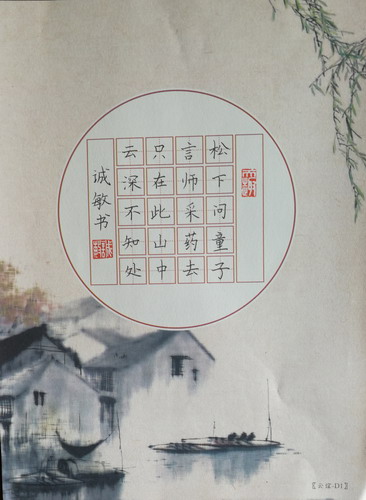 松下问童子
言师采药去
只在此山中
云深不知处
诚敏书